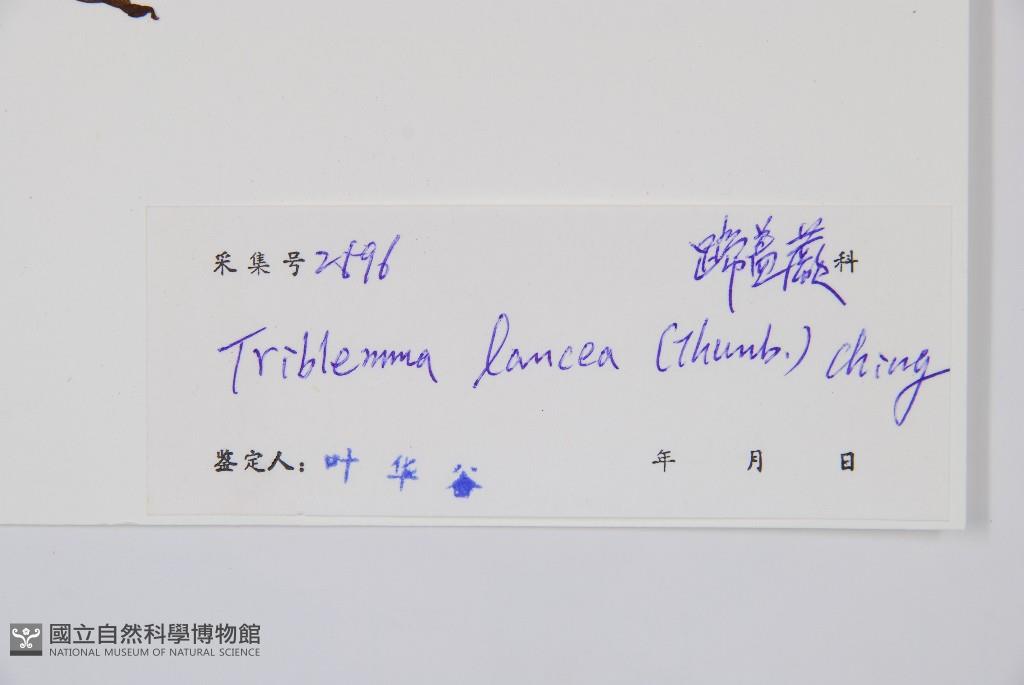 采集号 2596 蹄盖蕨科
Triblemma lancea (Thunb.) Ching
鉴定人: 叶华谷 年 月 日
國立自然科學博物館
NATIONAL MUSEUM OF NATURAL SCIENCE